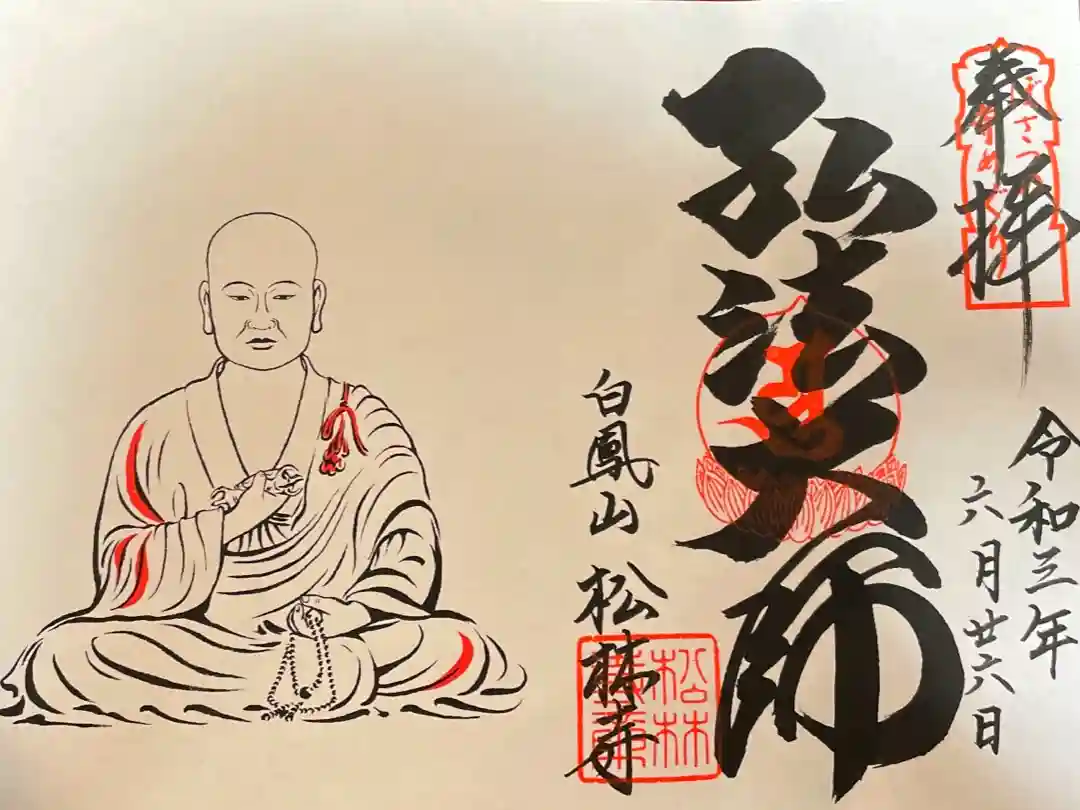 奉拝
ぼさつ
令和三年
六月廿六日
弘法大師
白鳳山 松林寺
松林